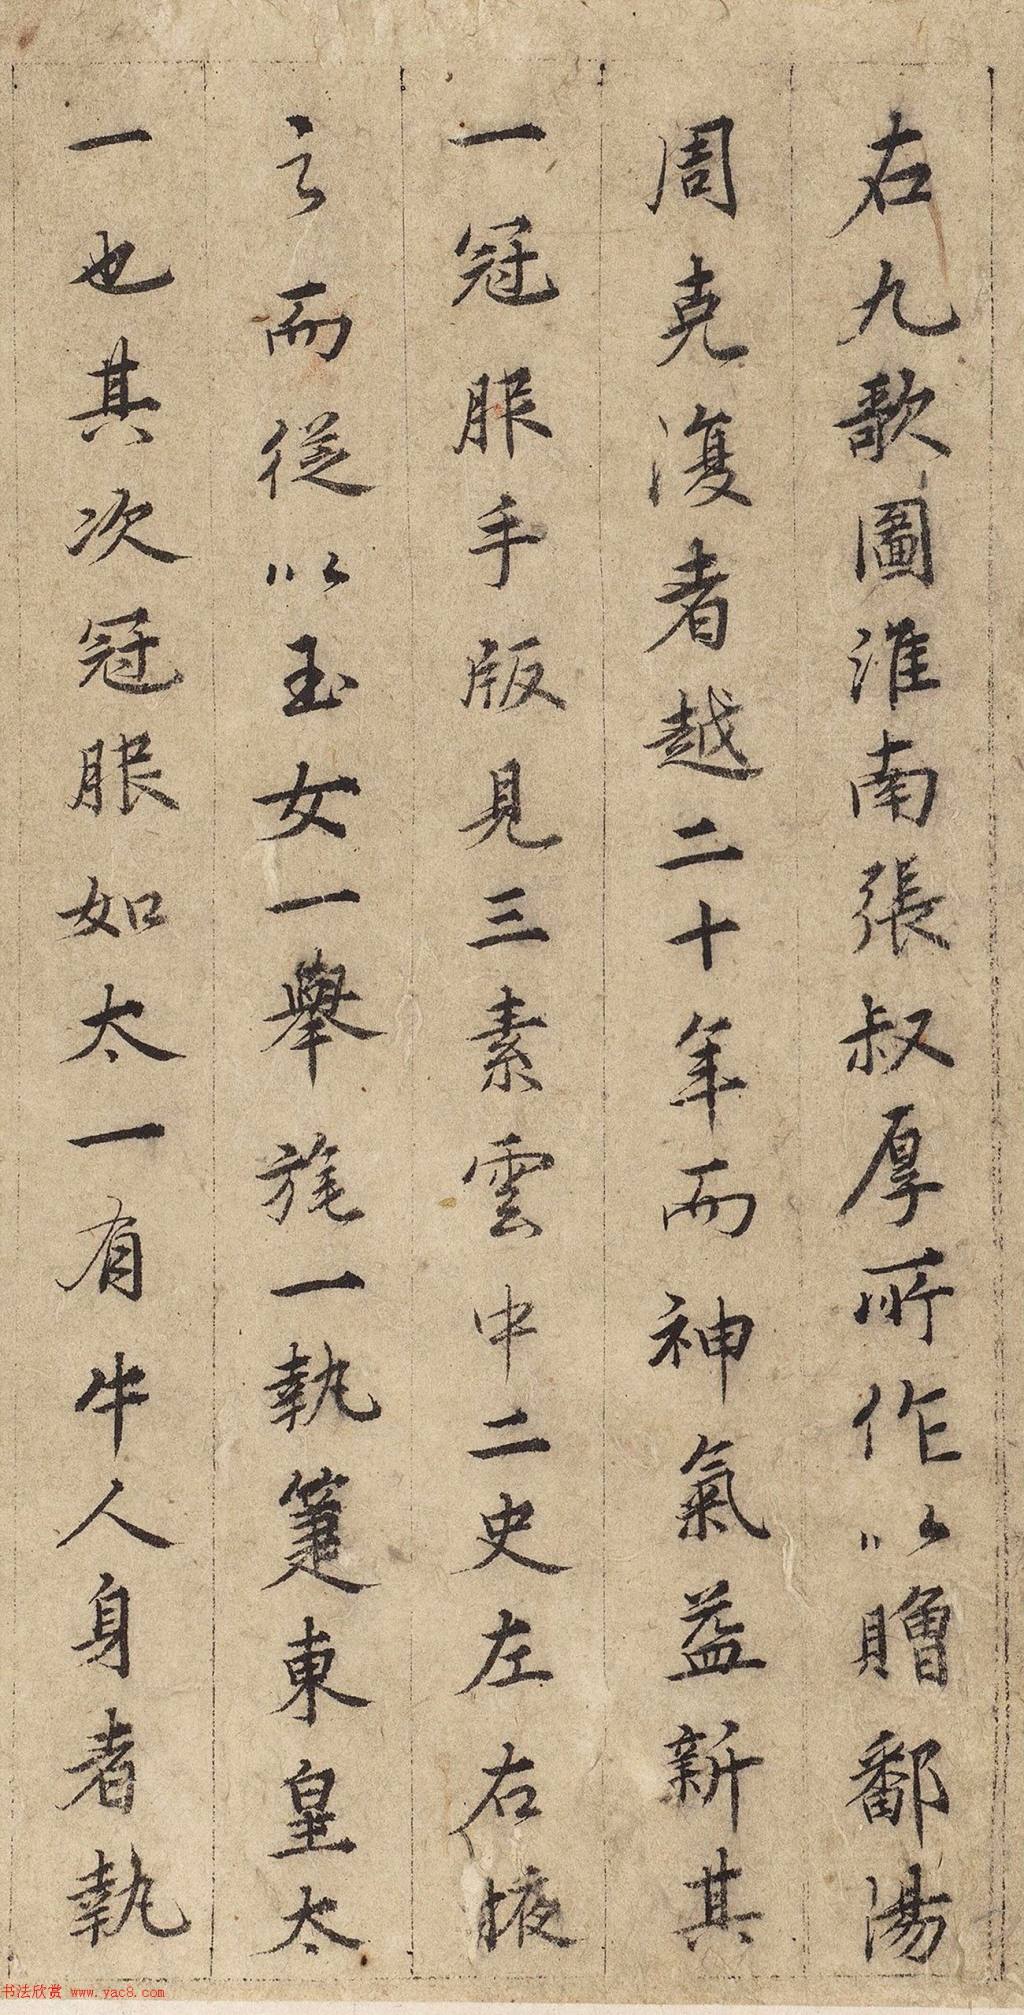 右九歌圖淮南張叔厚所作以贈鄱陽
周克復者越二十年而神氣益新其
一冠服手版見三素雲中二史左右掖
之而從以玉女一舉旄一執箑東皇太
一也其次冠服如太一有牛人身者執
书法欣赏 www.yac8.com